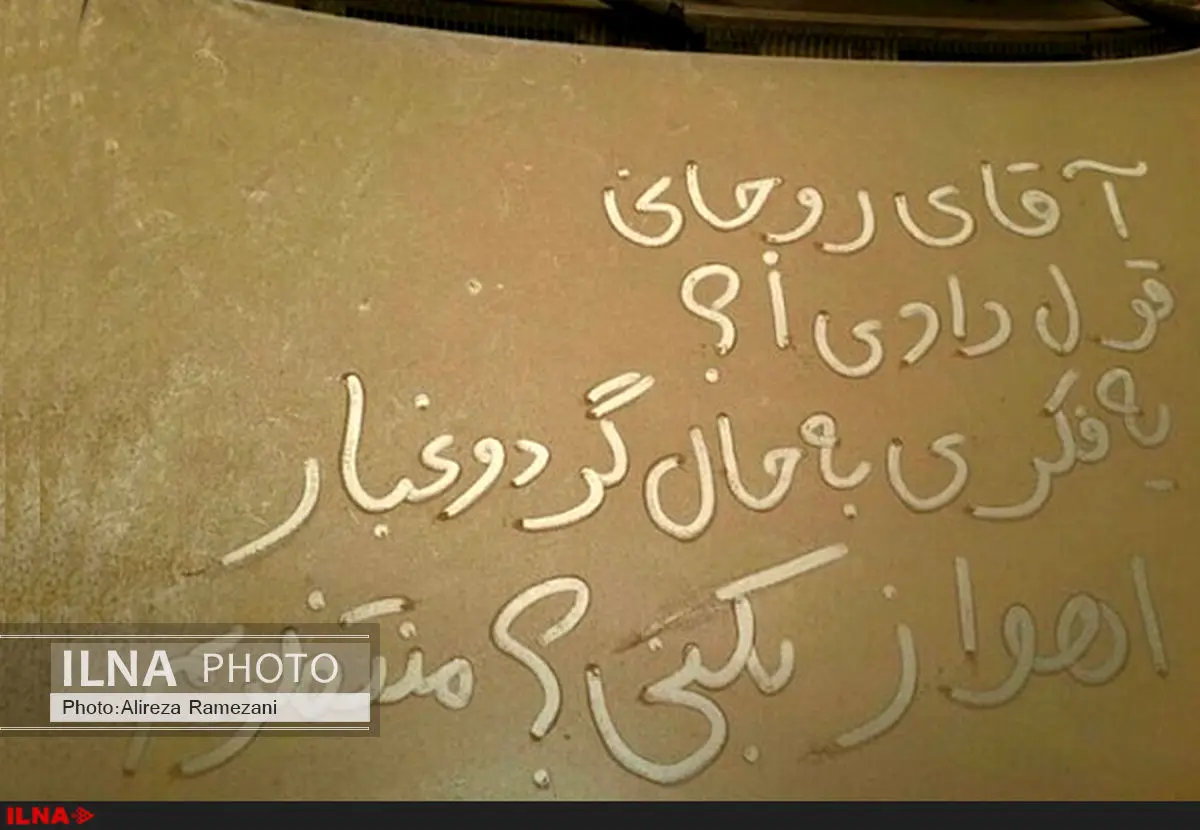 آقای روحانی
قول دادی ا؟
یه فکری به حال گردوغبار
اهواز بکنی؟ منتظریم
ILNA PHOTO
Photo:Alireza Ramezani
ILNA